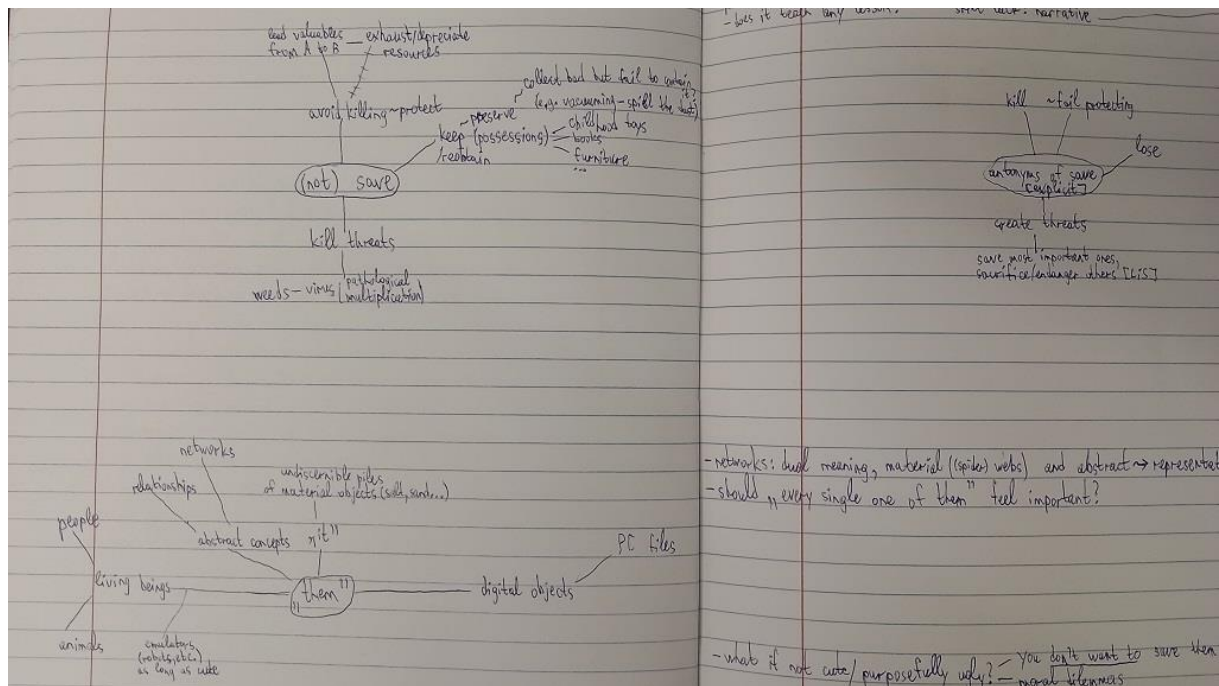 lead valuables
from A to B — exhaust/depreciate
resources
avoid killing ~ protect
collect bad but fail to contain it
(e.g. vacuuming – spill the dust)
~ preserve
keep (possessions)
/reobtain
childhood toys
books
furniture
...
(not) save
kill threats
weeds – virus (pathological
multiplication)
networks
relationships
undiscernible piles
of material objects (salt, sand...)
people
abstract concepts
„it”
living beings
„them”
digital objects
PC files
animals
emulators
(robots, etc.)
as long as cute
- Does it teach any lesson?
narrative
kill ~ fail protecting
lose
antonyms of save
[explicit]
create threats
save most important ones,
sacrifice/endanger others [LiS]
- networks: dual meaning, material ((spider) webs) and abstract → representat
- should „every single one of them” feel important?
- what if not cute/purposefully ugly? — you don't want to save them
— moral dilemmas